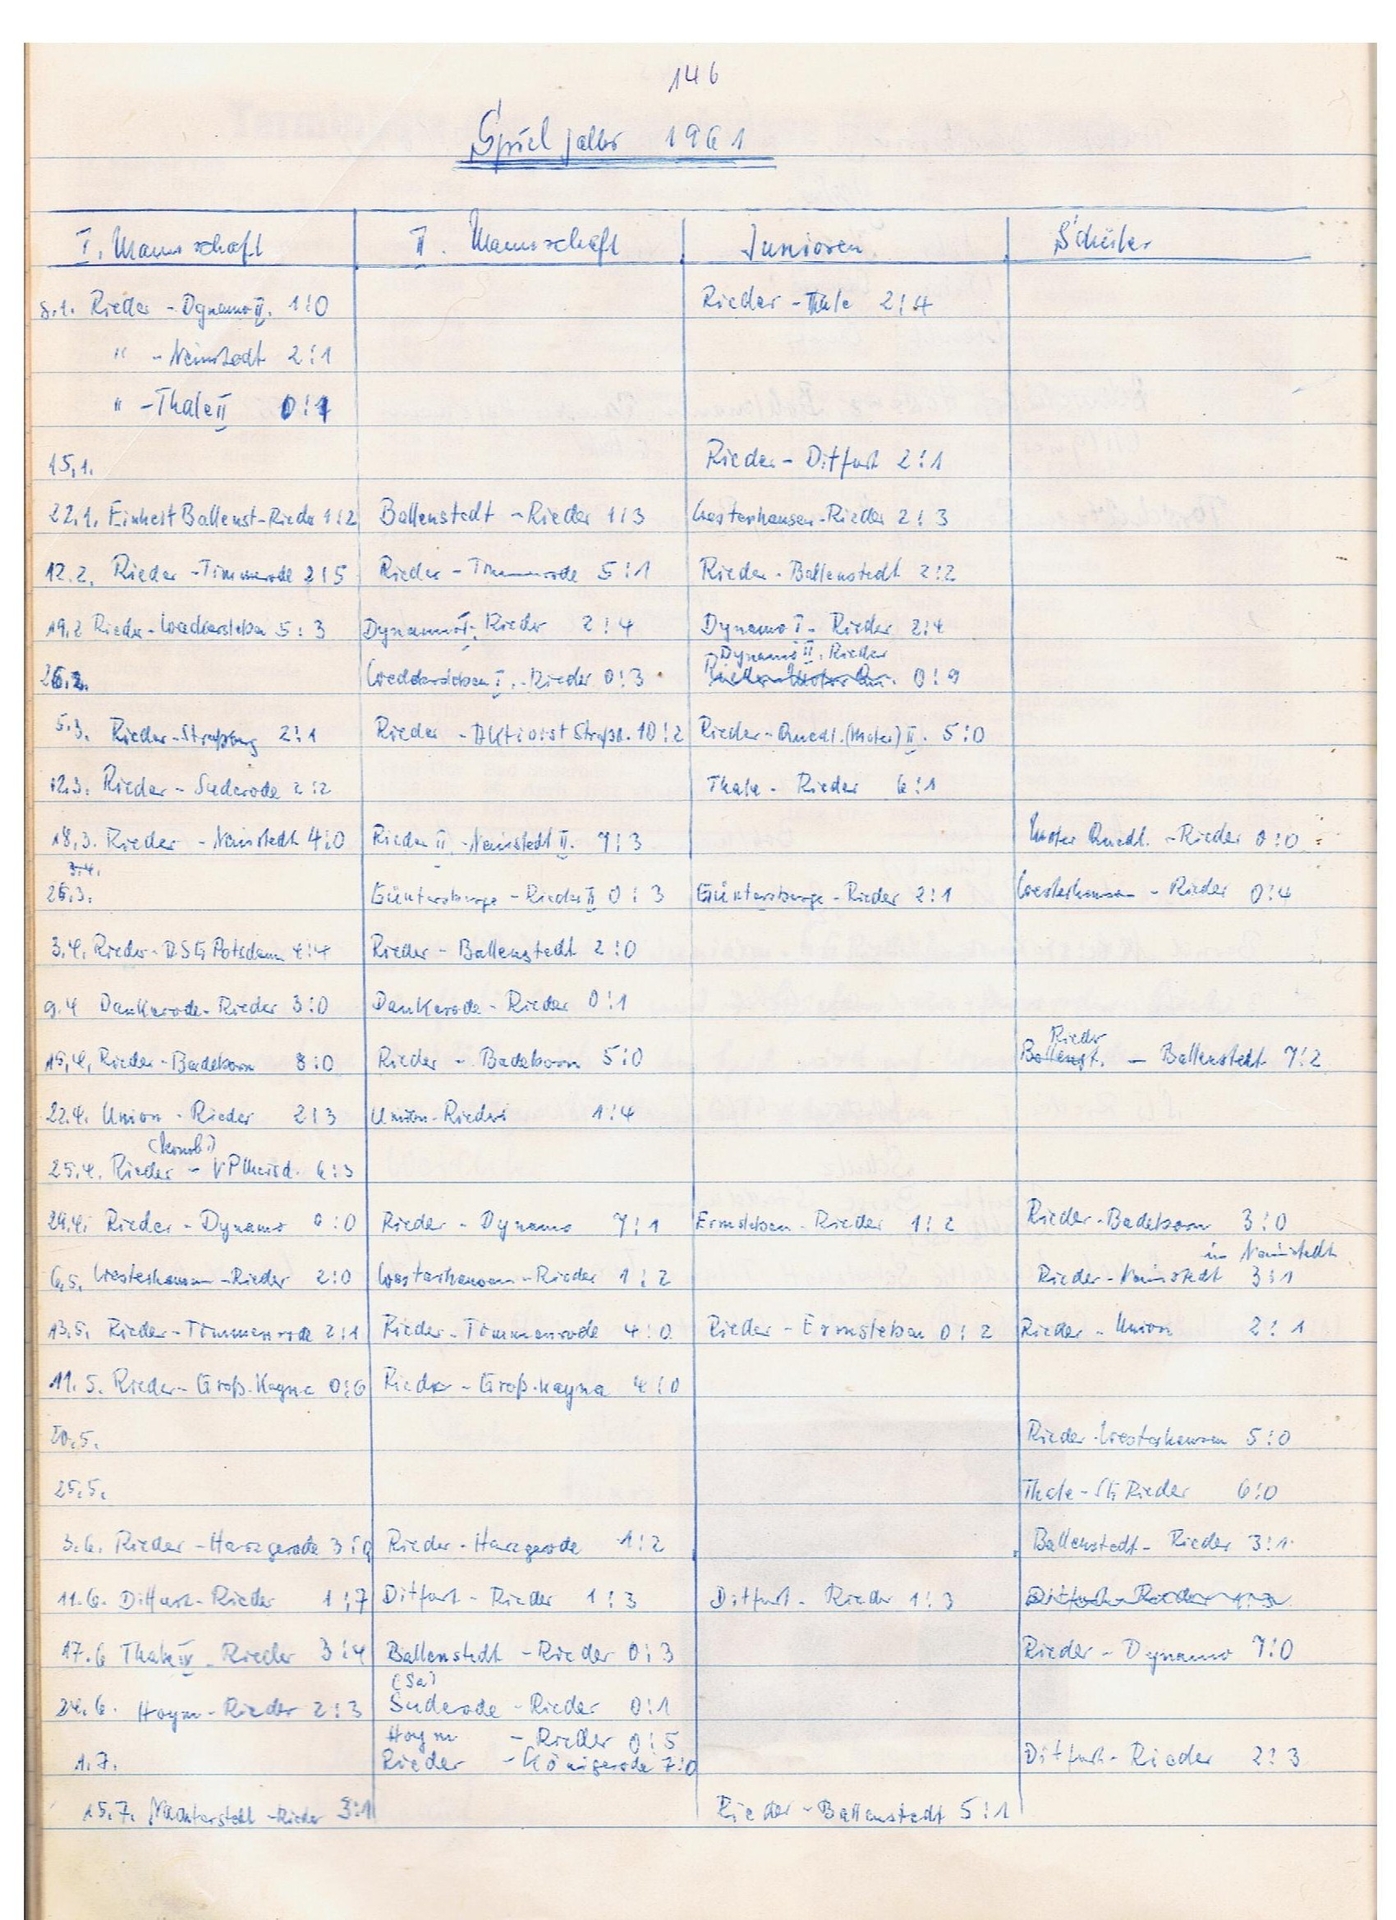 146
Spieljahr 1961
I. Mannschaft II. Mannschaft Junioren Schüler
8.1. Rieder - Dynamo II. 1:0 Rieder - Thale 2:4
" - Neinstedt 2:1
" - Thale II 0:1
15.1. Rieder - Ditfurt 2:1
22.1. Einheit Ballenst - Rieder 1:2 Ballenstedt - Rieder 1:3 Westerhausen - Rieder 2:3
12.2. Rieder - Timmenrode 2:5 Rieder - Timmenrode 5:1 Rieder - Ballenstedt 2:2
19.2 Rieder - Weddersleben 5:3 Dynamo I. Rieder 2:4 Dynamo I - Rieder 2:4
Dynamo II. Rieder
26.2. Weddersleben I. - Rieder 0:3 0:9
5.3. Rieder - Straßberg 2:1 Rieder - Aktivist Straßb. 10:2 Rieder - Quedl. (Motor) II. 5:0
12.3. Rieder - Suderode 2:2 Thale - Rieder 6:1
18.3. Rieder - Neinstedt 4:0 Rieder II - Neinstedt II. 7:3 Motor Quedl. - Rieder 0:0
3.4.
26.3. Güntersberge - Rieder II 0:3 Güntersberge - Rieder 2:1 Westerhausen - Rieder 0:4
3.4. Rieder - DSG Potsdam 4:4 Rieder - Ballenstedt 2:0
9.4 Dankerode - Rieder 3:0 Dankerode - Rieder 0:1
Rieder
Rieder - Badeborn 8:0 Rieder - Badeborn 5:0 Ballenst. - Ballenstedt 7:2
22.4. Union - Rieder 2:3 Union - Rieder 1:4
(komb.)
25.4. Rieder - 6:3
29.4. Rieder - Dynamo 0:0 Rieder - Dynamo 7:1 Ermsleben - Rieder 1:2 Rieder - Badeborn 3:0
in Neinstedt
6.5. Westerhausen - Rieder 2:0 Westerhausen - Rieder 1:2 Rieder - Neinstedt 3:1
13.5. Rieder - Timmenrode 2:1 Rieder - Timmenrode 4:0 Rieder - Ermsleben 0:2 Rieder - Union 2:1
11.5. Rieder - Groß-Kayna 0:6 Rieder - Groß-Kayna 4:0
20.5. Rieder - Westerhausen 5:0
25.5. Thale - SG Rieder 6:0
3.6. Rieder - Harzgerode 3:0 Rieder - Harzgerode 1:2 Ballenstedt - Rieder 3:1
11.6. Ditfurt - Rieder 1:7 Ditfurt - Rieder 1:3 Ditfurt - Rieder 1:3 Ditfurt - Rieder 1:3
17.6 Thale IV - Rieder 3:4 Ballenstedt - Rieder 0:3 Rieder - Dynamo 7:0
(Sa)
24.6. Hoym - Rieder 2:3 Suderode - Rieder 0:1
Hoym - Rieder 0:5
1.7. Rieder - Königerode 7:0 Ditfurt - Rieder 2:3
15.7. Nachterstedt - Rieder 3:1 Rieder - Ballenstedt 5:1